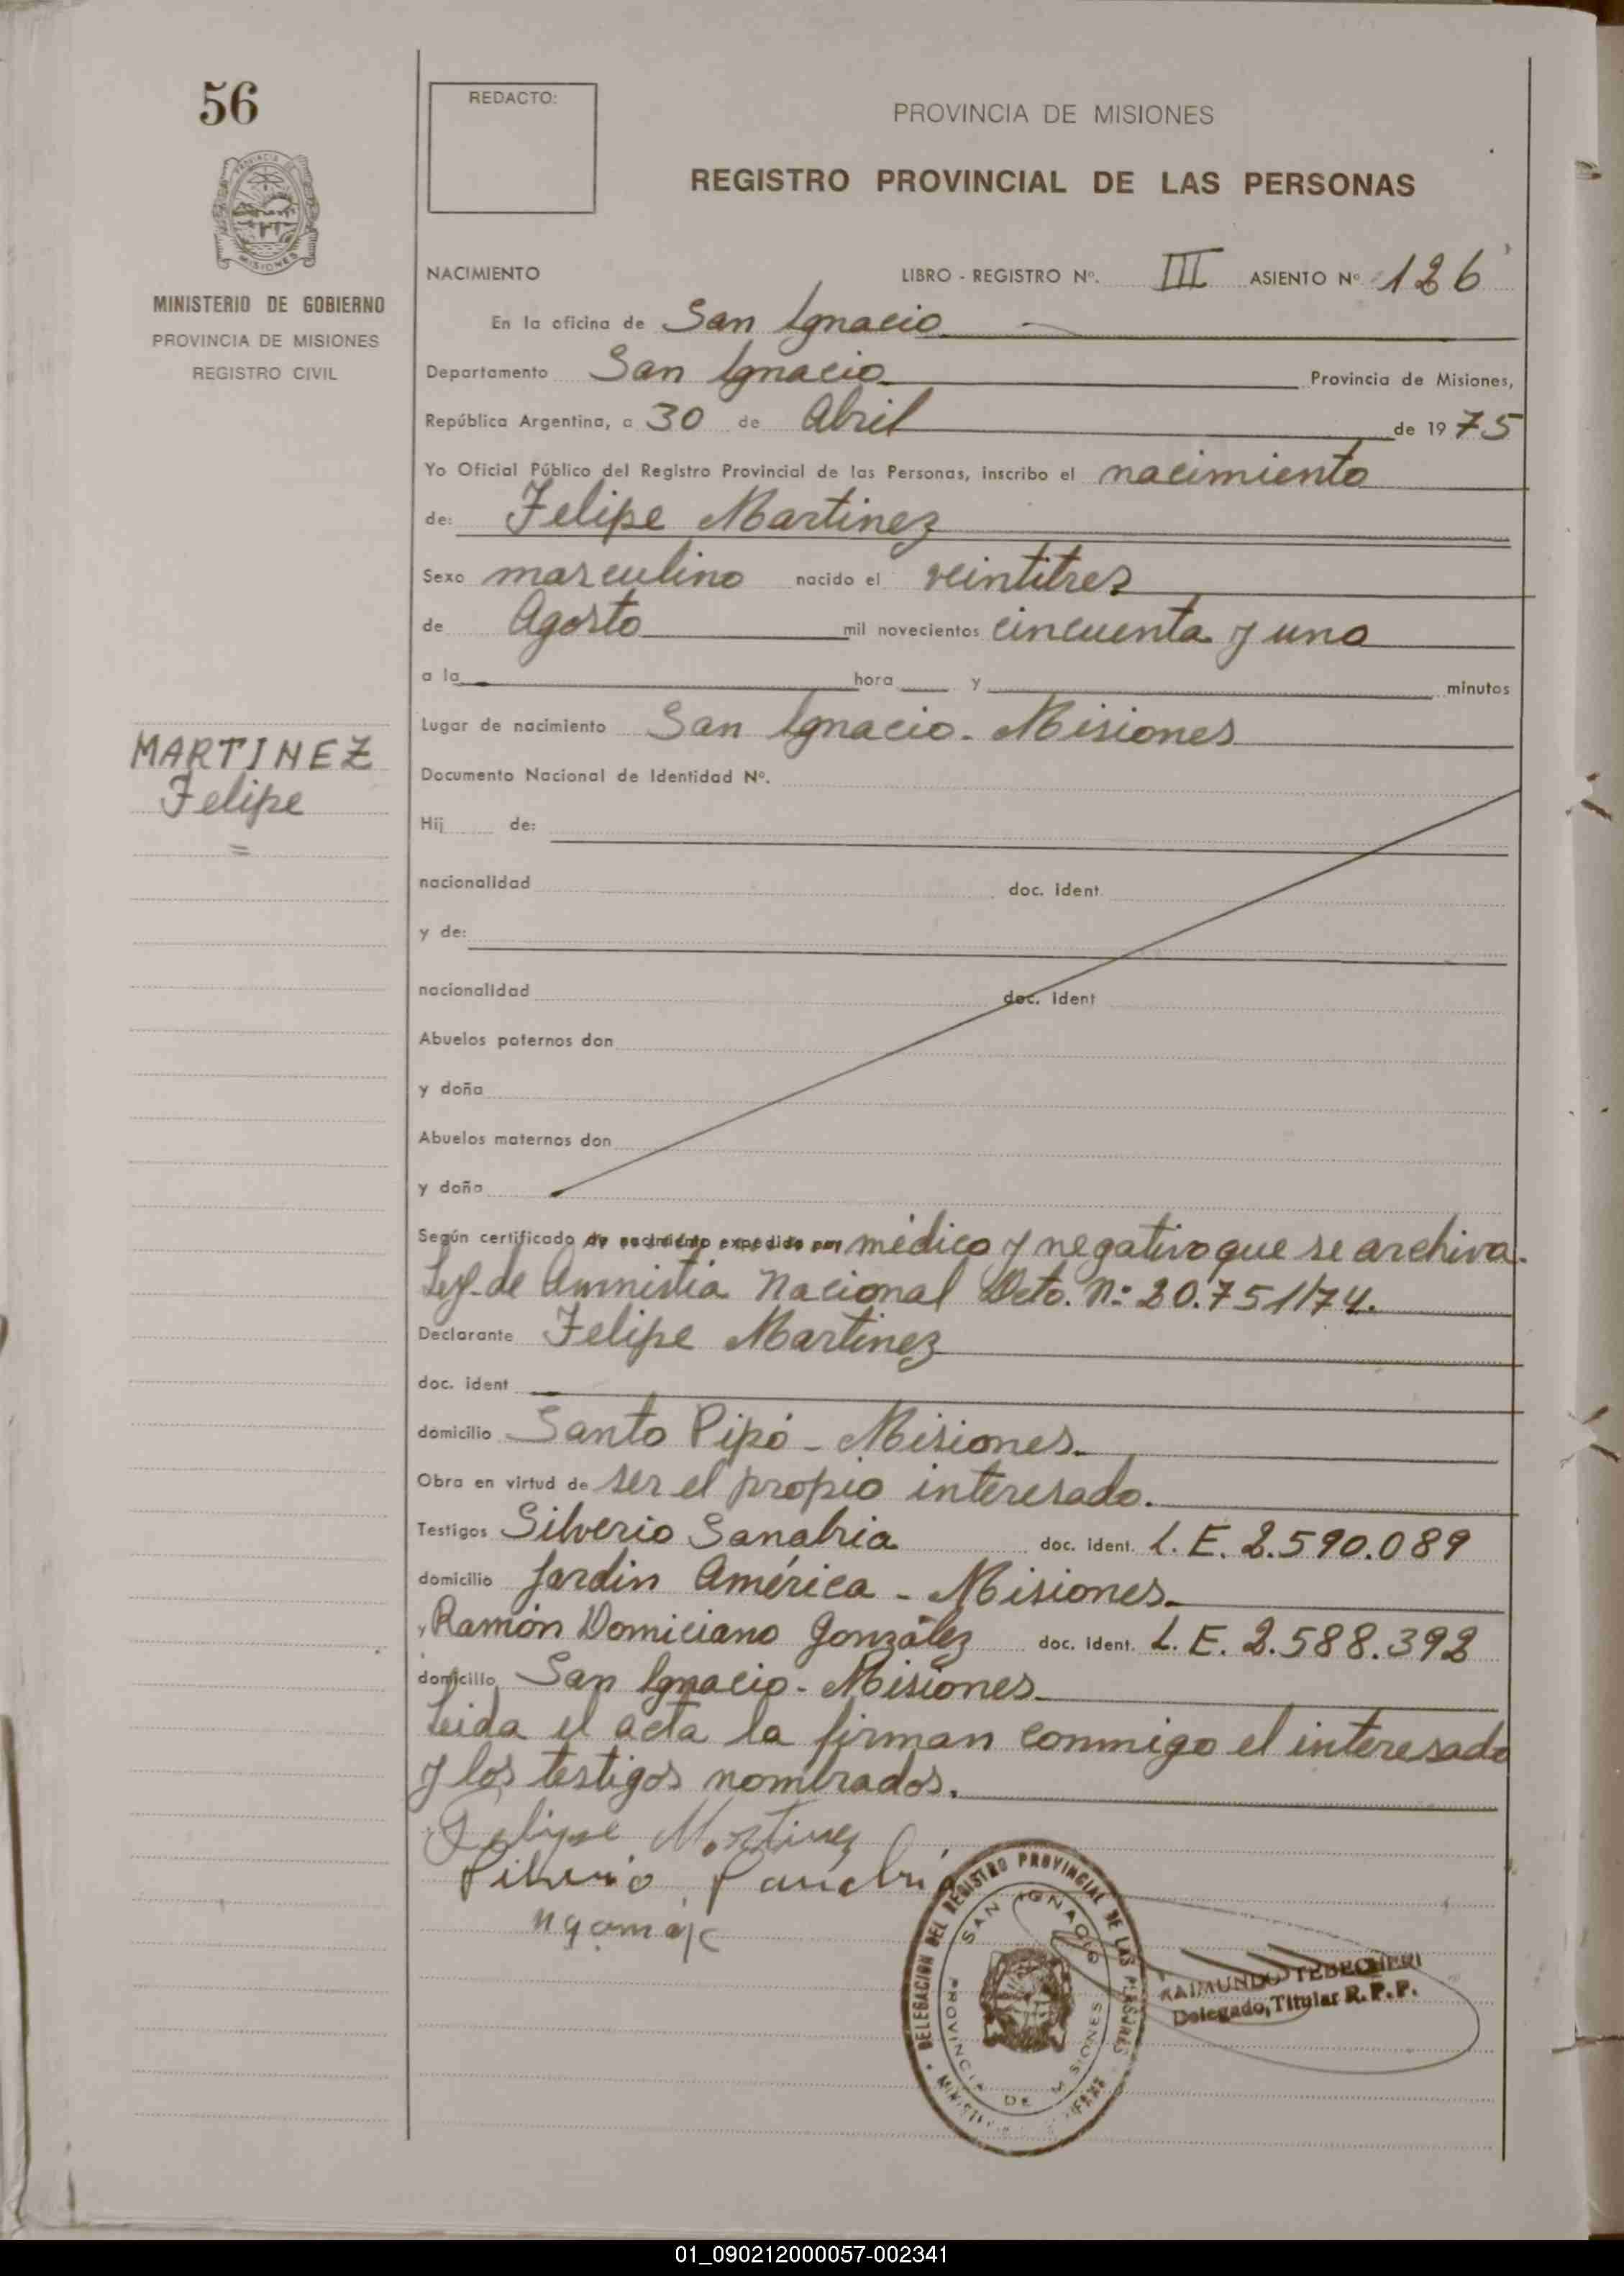 56
MINISTERIO DE GOBIERNO
PROVINCIA DE MISIONES
REGISTRO CIVIL
MARTINEZ
Felipe
REDACTO:
PROVINCIA DE MISIONES
REGISTRO PROVINCIAL DE LAS PERSONAS
NACIMIENTO LIBRO - REGISTRO Nº. III ASIENTO Nº 126
En la oficina de San Ignacio
Departamento San Ignacio Provincia de Misiones,
República Argentina, a 30 de Abril de 1975
Yo Oficial Público del Registro Provincial de las Personas, inscribo el nacimiento
de: Felipe Martinez
Sexo masculino nacido el veintitres
de Agosto mil novecientos cincuenta y uno
a la hora y minutos
Lugar de nacimiento San Ignacio - Misiones
Documento Nacional de Identidad Nº.
Hij de:
nacionalidad doc. ident.
y de:
nacionalidad doc. ident
Abuelos paternos don
y doña
Abuelos maternos don
y doña
Según certificado de nacimiento expedido por médico y negativo que se archiva.
Ley de Amnistia Nacional Dcto. Nº 20.751/74.
Declarante Felipe Martinez
doc. ident
domicilio Santo Pipó - Misiones.
Obra en virtud de ser el propio interesado.
Testigos Silverio Sanabria doc. ident. L. E. 2.590.089
domicilio Jardin América - Misiones.
y Ramón Domiciano González doc. ident. L. E. 2.588.392
domicilio San Ignacio - Misiones.
Leida el acta la firman conmigo el interesado
y los testigos nombrados.
Felipe Martinez
Silverio Sanabria
DELEGACION DEL REGISTRO PROVINCIAL DE LAS PERSONAS
SAN IGNACIO
PROVINCIA DE MISIONES
RAIMUNDO TEBECHERI
Delegado, Titular R.P.P.
01_090212000057-002341